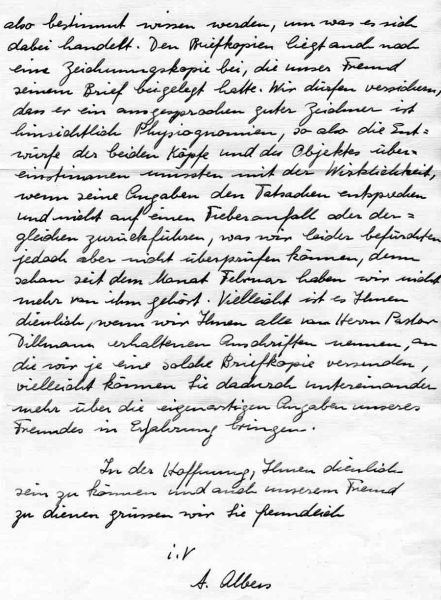 also bestimmt wissen werden, um was es sich
dabei handelt. Den Briefkopien liegt auch noch
eine Zeichnungskopie bei, die unser Freund
seinem Brief beigelegt hatte. Wir dürfen versichern,
dass er ein ausgesprochen guter Zeichner ist
hinsichtlich Physiognomien, so also die Ent=
würfe der beiden Köpfe und des Objektes über=
einstimmen müssten mit der Wirklichkeit,
wenn seine Angaben den Tatsachen entsprechen
und nicht auf einen Fieberanfall oder der=
gleichen zurückführen, was wir leider befürchten
jedoch aber nicht überprüfen können, denn
schon seit dem Monat Februar haben wir nicht
mehr von ihm gehört. Vielleicht ist es Ihnen
dienlich, wenn wir Ihnen alle von Herrn Pastor
Dillmann erhaltenen Anschriften nennen, an
die wir je eine solche Briefkopie versenden,
vielleicht können Sie dadurch untereinander
mehr über die eigenartigen Angaben unseres
Freundes in Erfahrung bringen.
In der Hoffnung, Ihnen dienlich
sein zu können und auch unserem Freund
zu dienen grüssen wir Sie freundlich
i.V
A. Albers